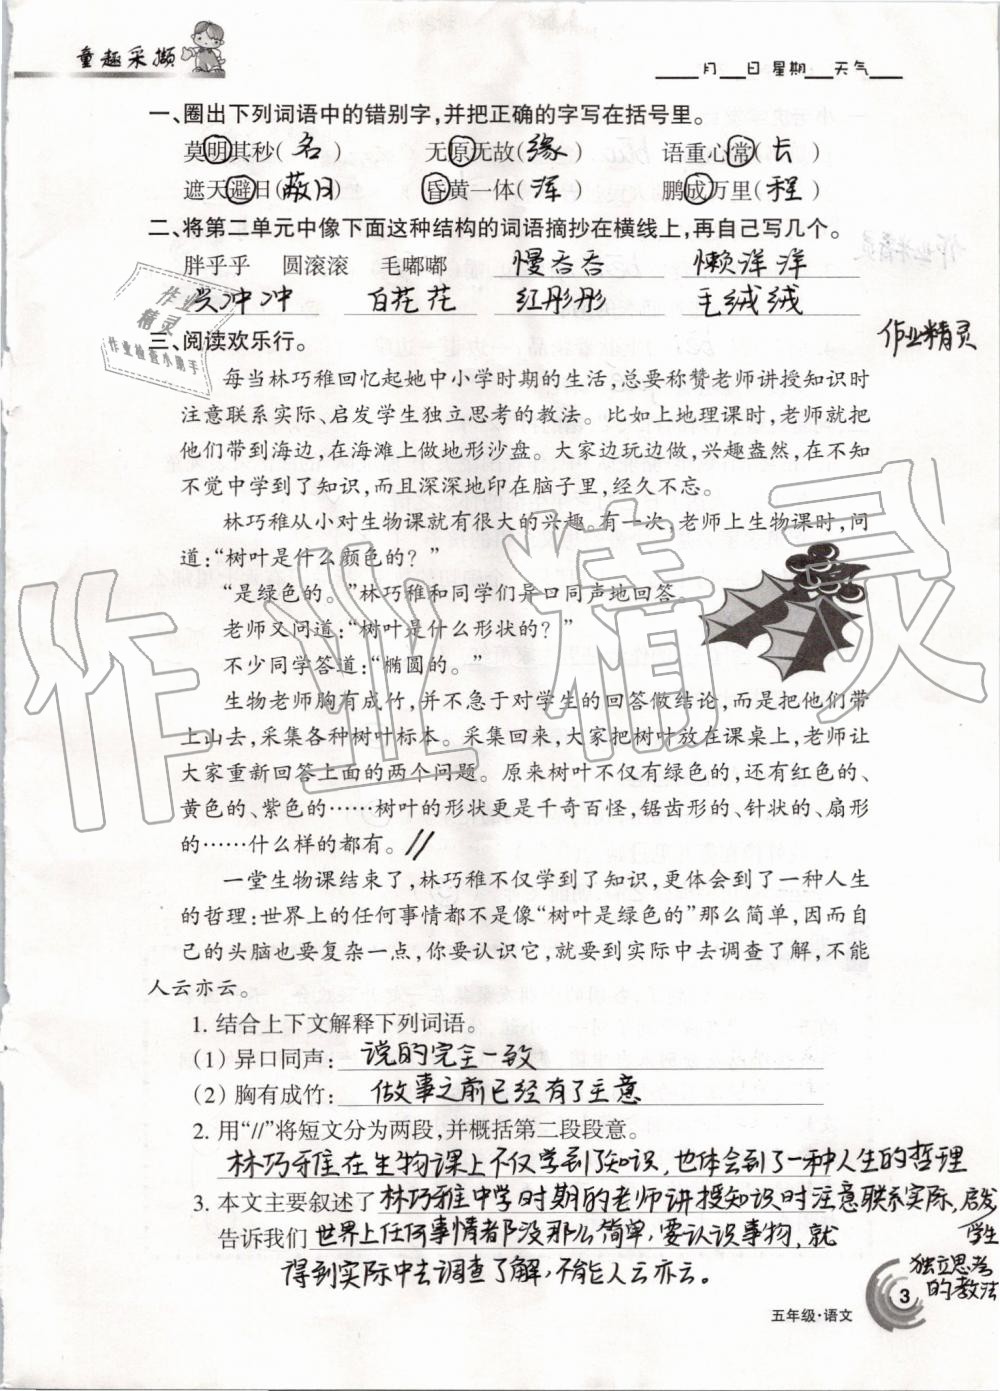 童趣采撷
____月__日 星期___天气____
一、圈出下列词语中的错别字,并把正确的字写在括号里。
莫明其秒( 名 ) 无原无故( 缘 ) 语重心常( 长 )
遮天避日( 蔽日 ) 昏黄一体( 浑 ) 鹏成万里( 程 )
二、将第二单元中像下面这种结构的词语摘抄在横线上,再自己写几个。
胖乎乎 圆滚滚 毛嘟嘟 慢吞吞 懒洋洋
兴冲冲 白花花 红彤彤 毛绒绒
作业精灵
作业检查小助手
三、阅读欢乐行。
作业精灵
每当林巧稚回忆起她中小学时期的生活,总要称赞老师讲授知识时
注意联系实际、启发学生独立思考的教法。比如上地理课时,老师就把
他们带到海边,在海滩上做地形沙盘。大家边玩边做,兴趣盎然,在不知
不觉中学到了知识,而且深深地印在脑子里,经久不忘。
林巧稚从小对生物课就有很大的兴趣。有一次,老师上生物课时,问
道:“树叶是什么颜色的？”
“是绿色的。”林巧稚和同学们异口同声地回答。
老师又问道:“树叶是什么形状的？”
不少同学答道:“椭圆的。”
生物老师胸有成竹,并不急于对学生的回答做结论,而是把他们带
上山去,采集各种树叶标本。采集回来,大家把树叶放在课桌上,老师让
大家重新回答上面的两个问题。原来树叶不仅有绿色的,还有红色的、
黄色的、紫色的……树叶的形状更是千奇百怪,锯齿形的、针状的、扇形
的……什么样的都有。//
一堂生物课结束了,林巧稚不仅学到了知识,更体会到了一种人生
的哲理:世界上的任何事情都不是像“树叶是绿色的”那么简单,因而自
己的头脑也要复杂一点,你要认识它,就要到实际中去调查了解,不能
人云亦云。
作业精灵
1. 结合上下文解释下列词语。
(1) 异口同声: 说的完全一致
(2) 胸有成竹: 做事之前已经有了主意
2. 用“//”将短文分为两段,并概括第二段段意。
林巧稚在生物课上不仅学到了知识,也体会到了一种人生的哲理
3. 本文主要叙述了林巧稚中学时期的老师讲授知识时注意联系实际,启发
学生
独立思考
的教法
告诉我们世界上任何事情都没那么简单,要认识事物,就
得到实际中去调查了解,不能人云亦云。
3
五年级·语文